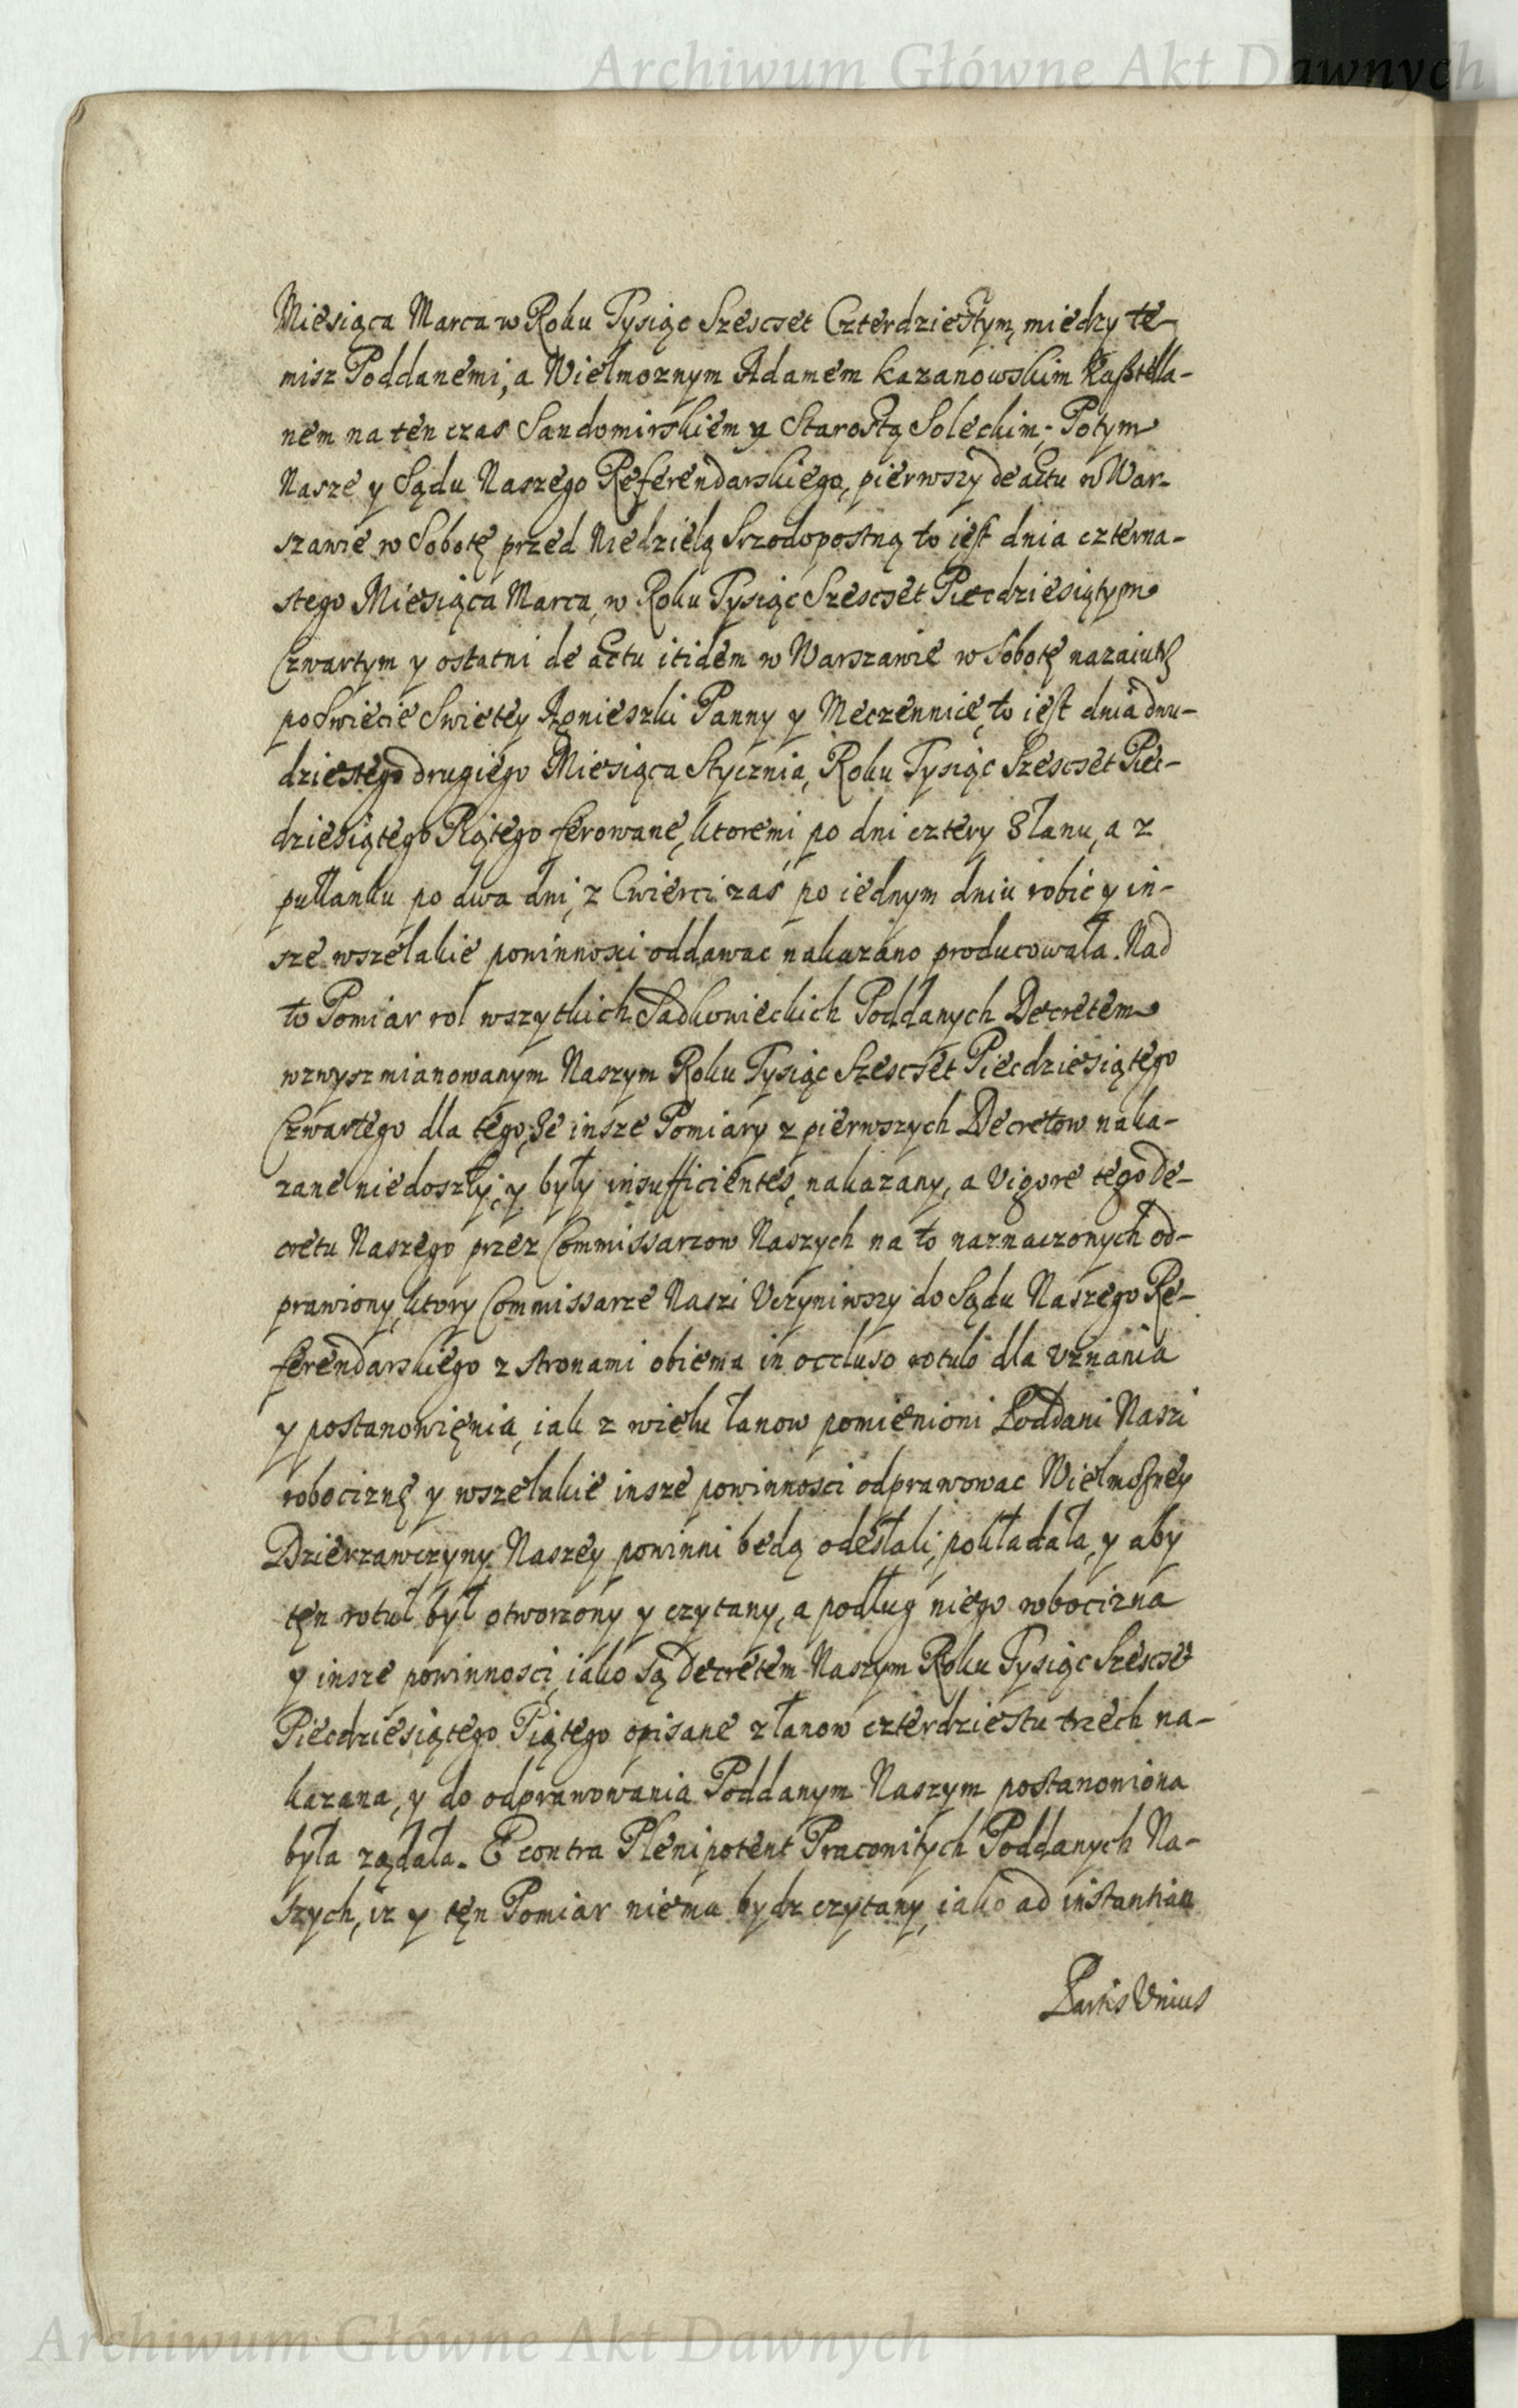 Archiwum Główne Akt Dawnych
Miesiąca Marca w Roku Tysiąc Szescset Czterdziestym, miedzy te-
misz Poddanemi, a Wielmoznym Adamem Kazanowskim Kasztella-
nem na ten czas Sandomirskiem y Starostą Soleckim; Potym
Nasze y Sądu Naszego Referendarskiego, pierwszy de actu w War-
szawie w Sobotę przed Niedzielą Srzodopostną to iest dnia czterna-
stego Miesiąca Marca, w Roku Tysiąc Szescset Piecdziesiątym
Czwartym y ostatni de actu itidem w Warszawie w Sobotę nazaiutrz
po Swiecie Swietey Agnieszki Panny y Meczennice, to iest dnia dwu-
dziestego drugiego Miesiąca Stycznia, Roku Tysiąc Szescset Piec-
dziesiątego Piątego ferowane, ktoremi po dni cztery z łanu, a z
pułłanku po dwa dni, z Cwierci zaś po iednym dniu robić y in-
sze wszelakie powinnosci oddawac nakazano producowała. Nad
to Pomiar rol wszytkich Sadkowieckich Poddanych Decretem
wzwysz mianowanym Naszym Roku Tysiąc Szescset Piecdziesiątego
Czwartego dla tego, że insze Pomiary z pierwszych Decretow naka-
zane niedoszły, y były insufficientes, nakazany, a vigore tego De-
cretu Naszego przez Commissarzow Naszych na to naznaczonych od-
prawiony, ktory Commissarze Naszi Vczyniwszy do Sądu Naszego Re-
ferendarskiego z stronami obiema in occluso rotulo dla vznania
y postanowienia, iak z wielu łanow pomienioni Poddani Naszi
robociznę y wszelakie insze powinnosci odprawowac Wielmożney
Dzierzawczyny Naszey powinni bedą odesłali, pokładała, y aby
ten rotuł był otworzony y czytany, a podług niego robocizna
y insze powinnosci, iako są Decretem Naszym Roku Tysiąc Szescset
Piecdziesiątego Piątego opisane z łanow czterdziestu trzech na-
kazana, y do odprawowania Poddanym Naszym postanowiona
była ządała. E contra Plenipotent Pracowitych Poddanych Na-
szych, iz y ten Pomiar niema bydz czytany, iako ad instantiam
Partis Vnius
Archiwum Główne Akt Dawnych